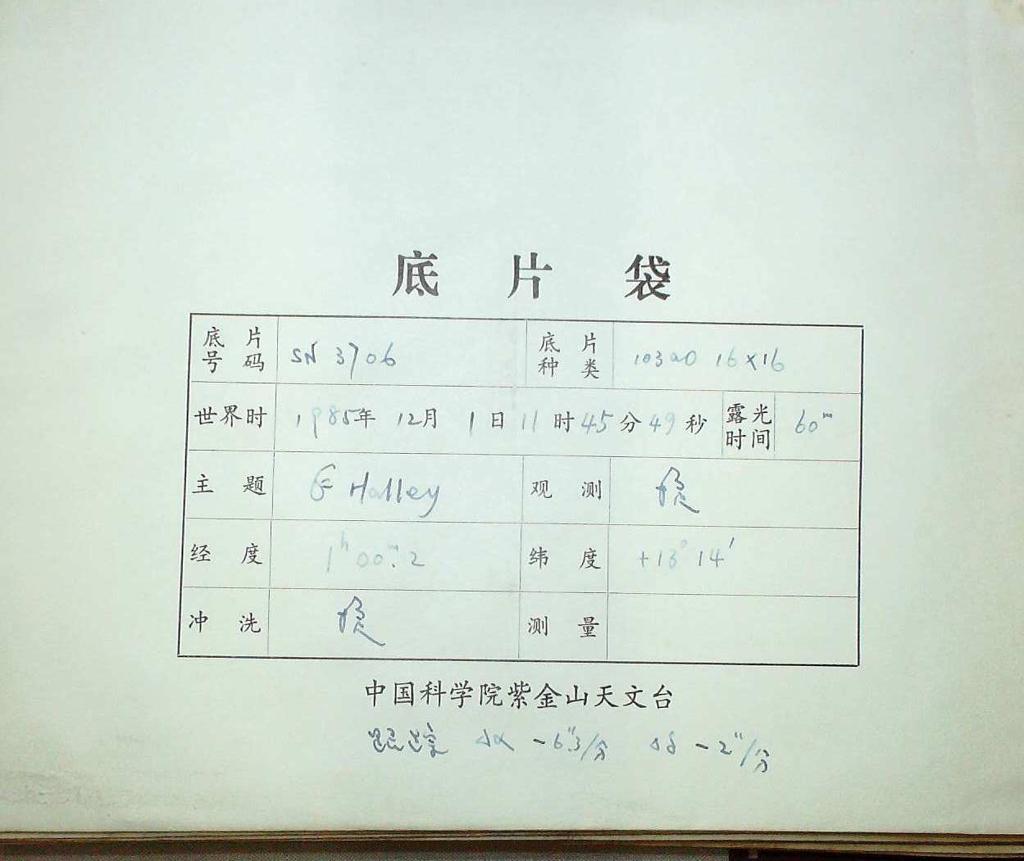 底 片 袋
底片号码 SN 3706 底片种类 103aO 16×16
世界时 1985年 12月 1日 11时 45分 49秒 露光时间 60ᵐ
主 题 Halley 观 测 稳
经 度 1ʰ 00ᵐ.2 纬 度 +13° 14′
冲 洗 稳 测 量
中国科学院紫金山天文台
跟踪 Δα -6″.3/分 Δδ -2″/分